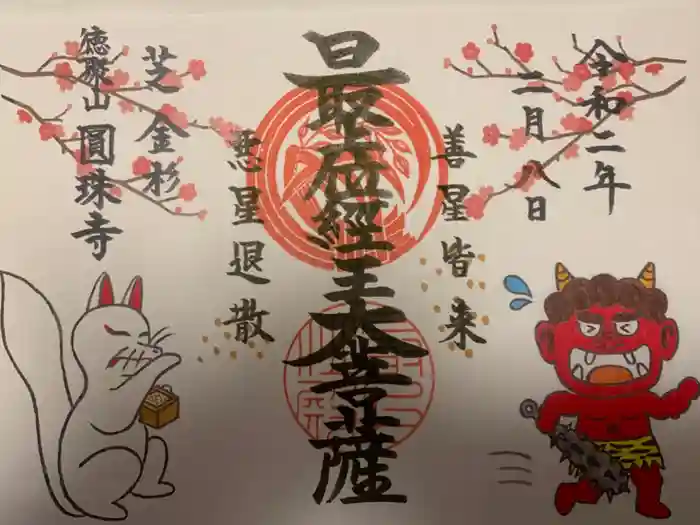 令和二年
二月八日
善星皆来
最上位経王大菩薩
悪星退散
芝金杉
徳聚山 圓珠寺